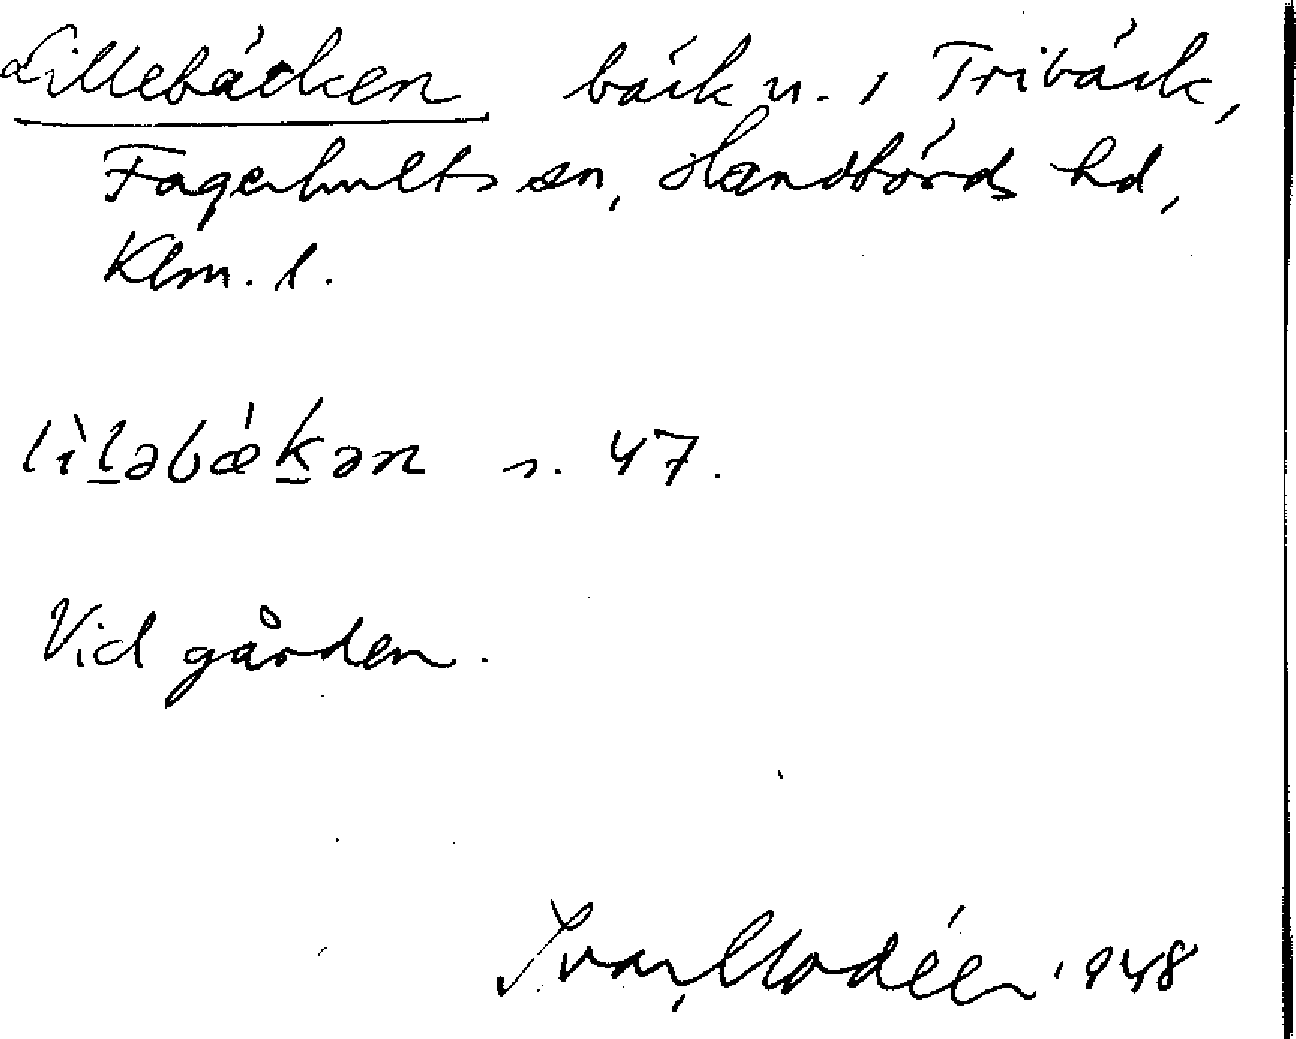 Lillebäcken bäck n. i Triback,
Fagerhults sn, Handbörds hd,
Klm. l.
lìl̲əbǽk̲ən s. 47.
Vid gården.
Ivar Modéer 1948